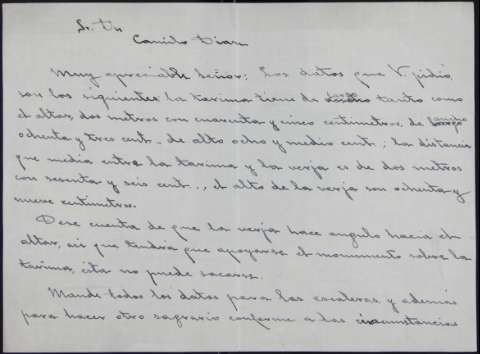 S. Dn
Camilo Diaz
Muy apreciable Señor: Los datos que V. pidió,
son los siguientes la tarima tiene de tanto como
el altar, dos metros con cuarenta y cinco centimetros, de ancho
ochenta y tres cent. de alto ocho y medio cent.; la distancia
que media entre la tarima y la verja es de dos metros
con sesenta y seis cent., el alto de la verja son ochenta y
nueve centimetros.
Dese cuenta de que la verja hace angulo hacia el
altar, asi que tendra que apoyarse el monumento sobre la
tarima, esta no puede sacarse.
Mande todos los datos para las escaleras y además
para hacer otro sagrario conforme a las circunstancias